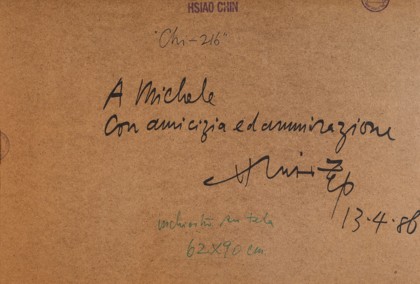 HSIAO CHIN
"Chi-216"
A Michele
Con amicizia ed ammirazione
13.4.86
inchiostro su tela
62X90 cm